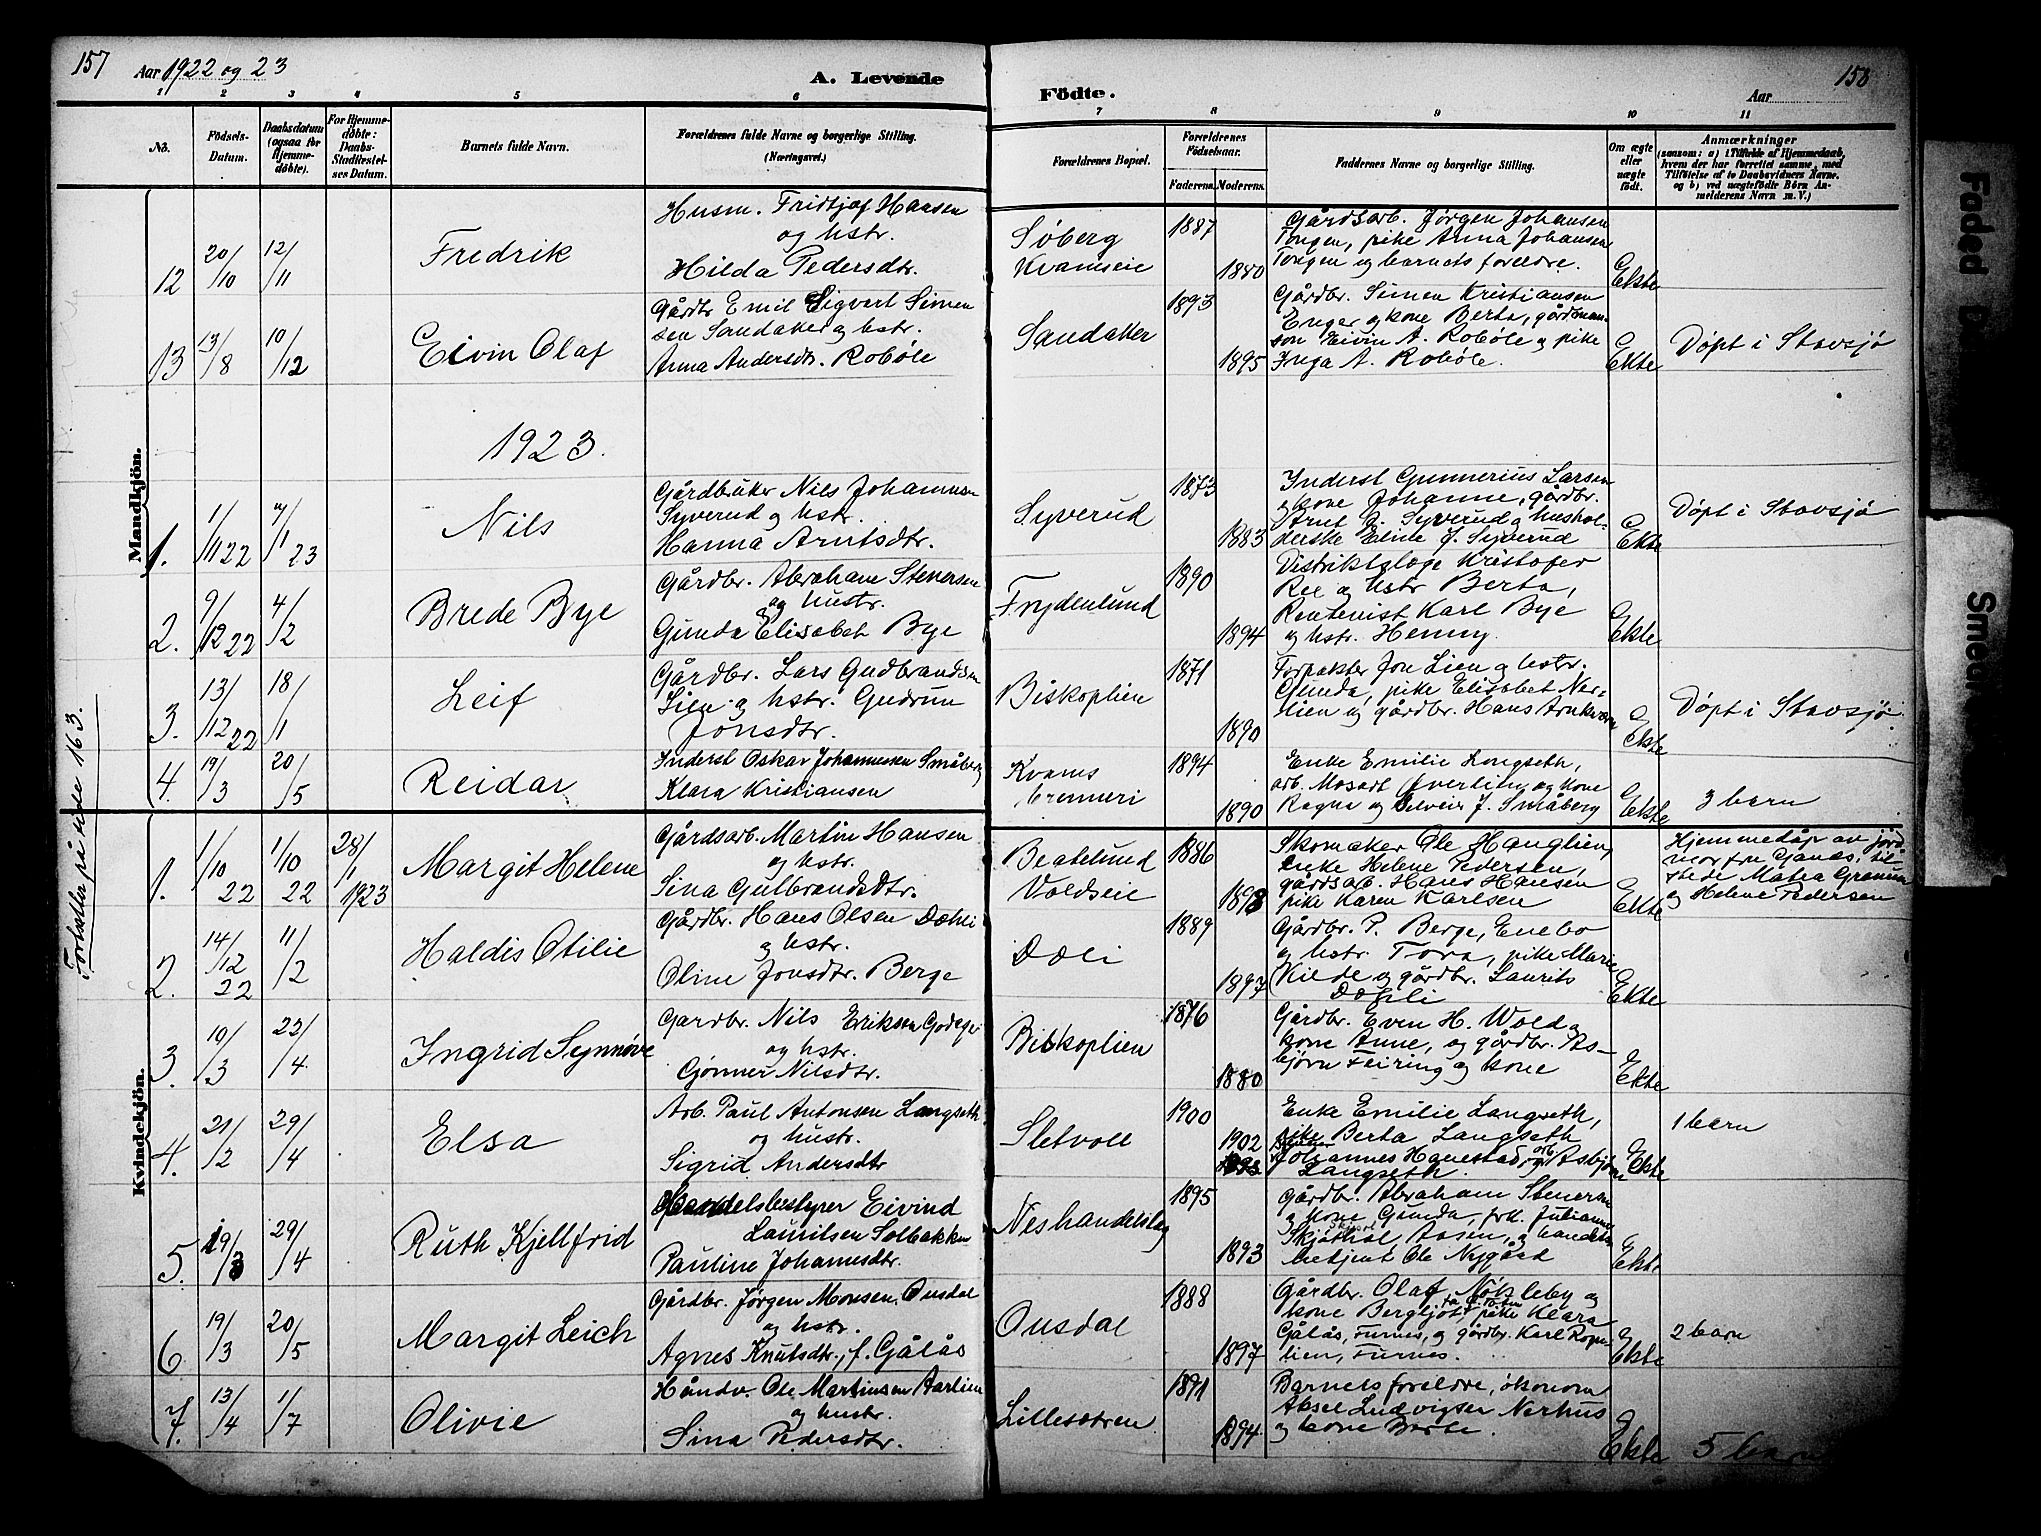 157
Aar 1922 og 23
A. Levende
Födte.
Aar
158
1 2 3 4 5 6 7 8 9 10 11
No.
Födsels-
Datum.
Daabsdatum
(ogsaa for
Hjemme-
döbte).
For Hjemme-
döbte:
Daabs-
Stadfæstel-
ses Datum.
Barnets fulde Navn.
Forældrenes fulde Navne og borgerlige Stilling.
(Næringsvei.)
Forældrenes Bopæl.
Forældrenes
Födselsaar.
Faderens. Moderens.
Faddernes Navne og borgerlige Stilling.
Om ægte
eller
uægte
födt.
Anmærkninger
(saasom: a) i Tilfælde af Hjemmedaab,
hvem der har forrettet samme, med
Tilföielse af to Daabsvidners Navne,
og b) ved uægtefödte Börn An-
melderens Navn m. V.)
Mandkjön.
12
20/10
12/11
Fredrik
Husm. Fridtjof Hansen
og hstr.
Hilda Pedersdtr.
Søberg
Kvamseie
1887
1880
Gårdsarb. Jørgen Johansen
Tongen, pike Anna Johansen
Tongen og barnets foreldre.
Ekte
13
13/8
10/12
Eivin Olaf
Gårdbr. Emil Sigvart Simen
sen Sandaker og hstr.
Anna Andersdtr. Robøle
Sandaker
1893
1895
Gårdbr. Simen Kristiansen
Enger og kone Berta, gårdman-
son Eivin A. Robøle og pike
Inga A. Robøle.
Ekte
Døpt i Stavsjø
1923.
1.
1/11 22
7/1 23
Nils
Gårdbruker Nils Johannesen
Syverud og hstr.
Hanna Arntsdtr.
Syverud
1873
1883
Inderst Gunnerius Larsen
og kone Johanne, gårdbr.
Arnt J. Syverud og hushol-
derske Eline J. Syverud
Ekte
Døpt i Stavsjø
2.
9/12 22
4/2
Brede Bye
Gårdbr. Abraham Stenersen
og hustr.
Gunda Elisabet Bye
Frydenlund
1890
1894
Distriktslæge Kristofer
Ree og hstr Berta,
Rentenist Karl Bye
og hstr. Henny.
Ekte
3.
13/12 22
18/1
Leif
Gårdbr. Lars Gudbrandsen
Lien og hstr. Gudrun
Jonsdtr.
Biskoplien
1871
1890
Forpakter Jon Lien og hstr.
Gunda, pike Elisabet Ner-
lien og gårdbr. Hans Arnkværn
Ekte
Døpt i Stavsjø.
4.
19/3
20/5
Reidar
Inderst Oskar Johannessen Småberg
Klara Kristiansen
Kvams
brenneri
1894
1890
Enke Emilie Longseth,
arb. Mosart Øverlien og kone
Ragna og Selveier J. Småberg
Ekte
3 barn
Fortsettes på side 163.
Kvindekjön.
1.
1/10 22
1/10 22
28/1 1923
Margit Helene
Gårdsarb. Martin Hansen
og hstr.
Sina Gulbrandsdtr.
Beatelund
Voldseie
1886
1893
Skomaker Ole Hanglien,
enke Helene Pedersen,
gårdsarb. Hans Hansen
pike Karen Karlsen
Ekte
Hjemmedåp av jord
mor fru Gjanæs, til
stede Matea Granum
og Helene Pedersen
2.
14/12 22
11/2
Haldis Otilie
Gårdbr. Hans Olsen Dæhli
og hstr.
Oline Jonsdtr. Berge
Dæli
1889
1897
Gårdbr. P. Berge, Enebo
og hstr. Tora, pike Marie
Kilde og gårdbr. Laurits
Dæhli
Ekte
3.
10/3
22/4
Ingrid Synnøve
Gardbr. Nils Eriksen Godager
og hstr.
Gjønner Nilsdtr.
Biskoplien
1876
1880
Gårdbr. Even H. Wold og
kone Anne, og gårdbr. As-
bjørn Feiring og kone
Ekte
4.
21/2
29/4
Elsa
Arb. Paul Antonsen Langseth
og hustr.
Sigrid Andersdtr
Sletvold
1900
1902
Enke Emilie Langseth,
pike Berta Langseth
Johannes Hanestad, og arb. Asbjørn
Langseth.
Ekte
1 barn
5.
19/3
29/4
Ruth Kjellfrid
Handelsbestyrer Eivind
Lauritsen Solbakken
Pauline Johannesdtr.
Neshandelslag
1895
1893
Gårdbr. Abraham Stenersen
og kone Gunda, frk. Julianne
Aasen, og handels
betjent Ole Nygård
Ekte
6.
19/3
20/5
Margit Leich
Gårdbr. Jørgen Monsen Onsdal
og hstr.
Agnes Knutsdtr., f. Gålås
Onsdal
1888
1897
Gårdbr. Olaf Nøkleby og
kone Bergljot, pike Klara
Gålås, Furnes, og gårdbr. Karl Rogn
lien, Furnes.
Ekte
2 barn
7.
13/4
1/7
Olivie
Håndv. Ole Martinsen Aarlien
og hustr.
Sina Pedersdtr.
Lillesætren
1891
1894
Barnets foreldre, økonom
Aksel Ludvigsen Nerhus
og kone Berte.
Ekte
5 barn
Faded